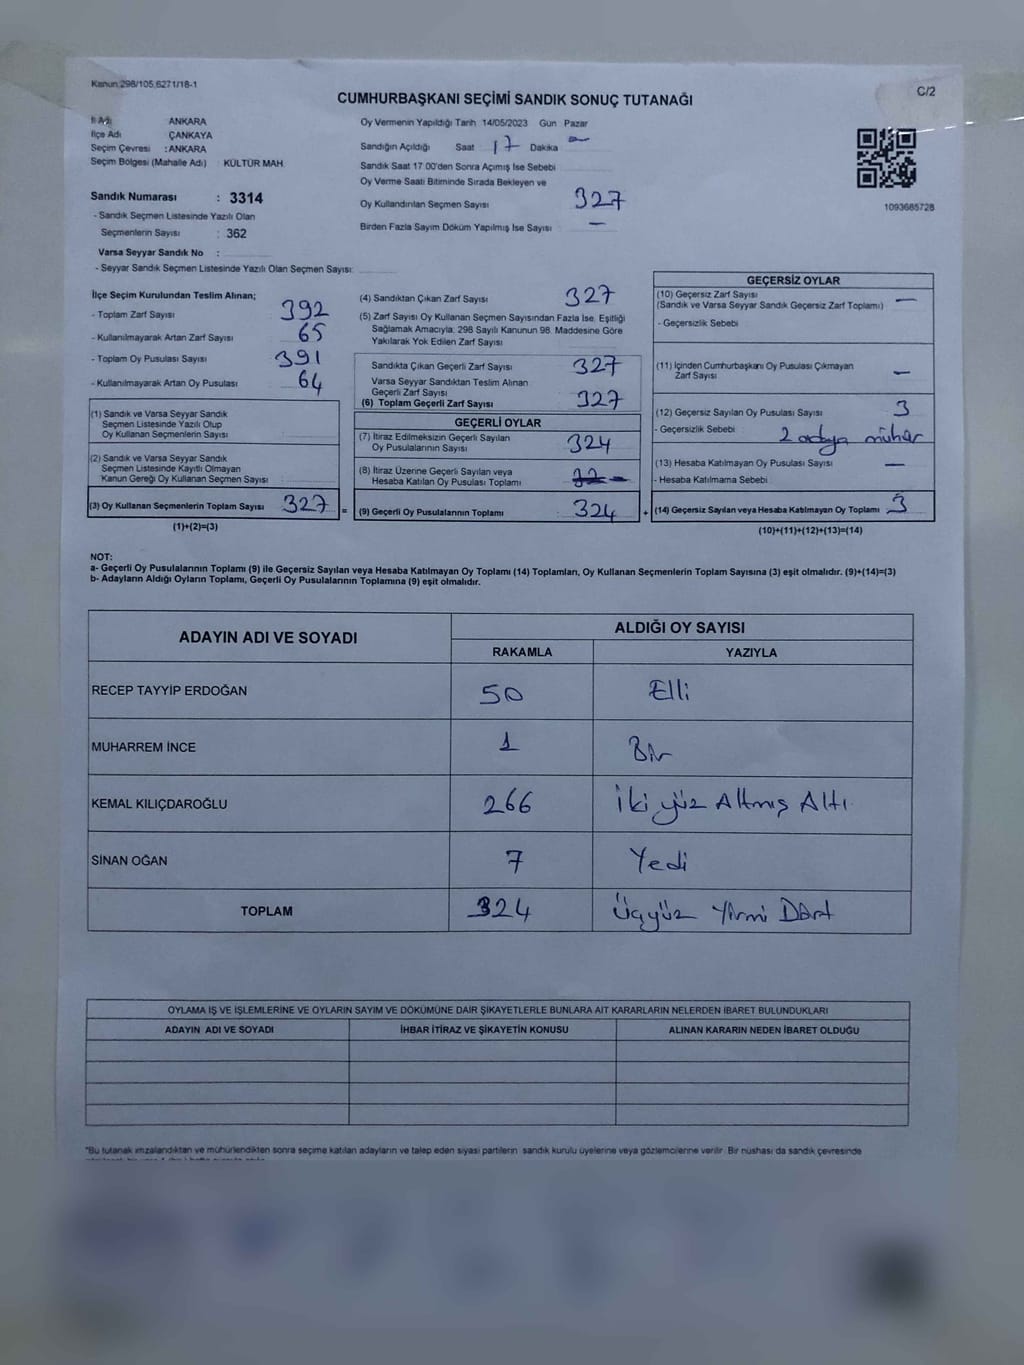 Kanun:298/105,6271/18-1
C/2
CUMHURBAŞKANI SEÇİMİ SANDIK SONUÇ TUTANAĞI
İl Adı ANKARA
İlçe Adı ÇANKAYA
Seçim Çevresi : ANKARA
Seçim Bölgesi (Mahalle Adı) : KÜLTÜR MAH.
Sandık Numarası : 3314
- Sandık Seçmen Listesinde Yazılı Olan
Seçmenlerin Sayısı : 362
Varsa Seyyar Sandık No :
- Seyyar Sandık Seçmen Listesinde Yazılı Olan Seçmen Sayısı:
Oy Vermenin Yapıldığı Tarih 14/05/2023 Gün Pazar
Sandığın Açıldığı Saat 17 Dakika —
Sandık Saat 17:00'den Sonra Açımış İse Sebebi
Oy Verme Saati Bitiminde Sırada Bekleyen ve
Oy Kullandırılan Seçmen Sayısı 327
Birden Fazla Sayım Döküm Yapılmış İse Sayısı —
1093685728
İlçe Seçim Kurulundan Teslim Alınan;
- Toplam Zarf Sayısı 392
- Kullanılmayarak Artan Zarf Sayısı 65
- Toplam Oy Pusulası Sayısı 391
- Kullanılmayarak Artan Oy Pusulası 64
(1) Sandık ve Varsa Seyyar Sandık
Seçmen Listesinde Yazılı Olup
Oy Kullanan Seçmenlerin Sayısı
(2) Sandık ve Varsa Seyyar Sandık
Seçmen Listesinde Kayıtlı Olmayan
Kanun Gereği Oy Kullanan Seçmen Sayısı :
(3) Oy Kullanan Seçmenlerin Toplam Sayısı 327 =
(1)+(2)=(3)
(4) Sandıktan Çıkan Zarf Sayısı 327
(5) Zarf Sayısı Oy Kullanan Seçmen Sayısından Fazla İse, Eşitliği
Sağlamak Amacıyla; 298 Sayılı Kanunun 98. Maddesine Göre
Yakılarak Yok Edilen Zarf Sayısı
Sandıkta Çıkan Geçerli Zarf Sayısı 327
Varsa Seyyar Sandıktan Teslim Alınan
Geçerli Zarf Sayısı
(6) Toplam Geçerli Zarf Sayısı 327
GEÇERLİ OYLAR
(7) İtiraz Edilmeksizin Geçerli Sayılan
Oy Pusulalarının Sayısı 324
(8) İtiraz Üzerine Geçerli Sayılan veya
Hesaba Katılan Oy Pusulası Toplamı —
(9) Geçerli Oy Pusulalarının Toplamı 324 +
GEÇERSİZ OYLAR
(10) Geçersiz Zarf Sayısı —
(Sandık ve Varsa Seyyar Sandık Geçersiz Zarf Toplamı)
- Geçersizlik Sebebi
(11) İçinden Cumhurbaşkanı Oy Pusulası Çıkmayan
Zarf Sayısı —
(12) Geçersiz Sayılan Oy Pusulası Sayısı 3
- Geçersizlik Sebebi 2 adaya mühür
(13) Hesaba Katılmayan Oy Pusulası Sayısı —
- Hesaba Katılmama Sebebi
(14) Geçersiz Sayılan veya Hesaba Katılmayan Oy Toplamı 3
(10)+(11)+(12)+(13)=(14)
NOT:
a- Geçerli Oy Pusulalarının Toplamı (9) ile Geçersiz Sayılan veya Hesaba Katılmayan Oy Toplamı (14) Toplamları, Oy Kullanan Seçmenlerin Toplam Sayısına (3) eşit olmalıdır. (9)+(14)=(3)
b- Adayların Aldığı Oyların Toplamı, Geçerli Oy Pusulalarının Toplamına (9) eşit olmalıdır.
ADAYIN ADI VE SOYADI ALDIĞI OY SAYISI
RAKAMLA YAZIYLA
RECEP TAYYİP ERDOĞAN 50 Elli
MUHARREM İNCE 1 Bir
KEMAL KILIÇDAROĞLU 266 İki yüz Altmış Altı
SİNAN OĞAN 7 Yedi
TOPLAM 324 Üçyüz Yirmi Dört
OYLAMA İŞ VE İŞLEMLERİNE VE OYLARIN SAYIM VE DÖKÜMÜNE DAİR ŞİKAYETLERLE BUNLARA AİT KARARLARIN NELERDEN İBARET BULUNDUKLARI
ADAYIN ADI VE SOYADI İHBAR İTİRAZ VE ŞİKAYETİN KONUSU ALINAN KARARIN NEDEN İBARET OLDUĞU
*Bu tutanak imzalandıktan ve mühürlendikten sonra seçime katılan adayların ve talep eden siyasi partilerin sandık kurulu üyelerine veya gözlemcilerine verilir. Bir nüshası da sandık çevresinde